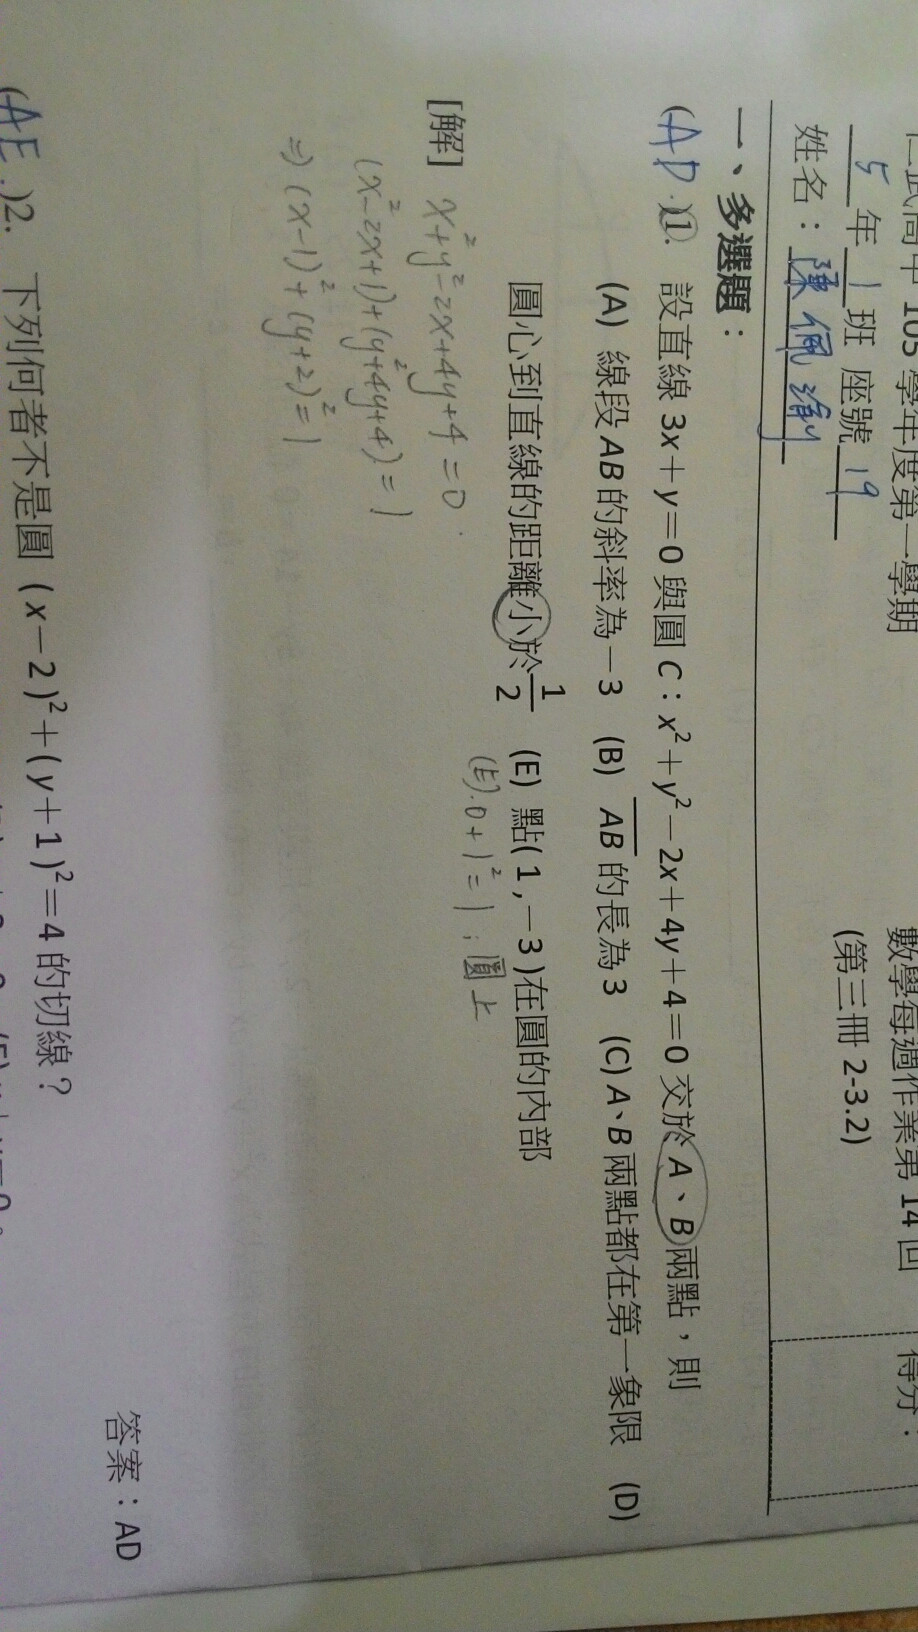 高中 105 學年度第一學期 數學每週作業第 14 回 得分：
5 年 1 班 座號 19 (第三冊 2-3.2)
姓名：陳佩
一、多選題：
(AD.)1. 設直線 3x＋y＝0 與圓 C：x²＋y²－2x＋4y＋4＝0 交於 A、B 兩點，則
(A) 線段 AB 的斜率為－3 (B) AB 的長為 3 (C) A、B 兩點都在第一象限 (D)
圓心到直線的距離小於 1/2 (E) 點(1,－3)在圓的內部
[解] x²+y²-2x+4y+4=0
(E).0+1²=1；圓上
(x²-2x+1)+(y²+4y+4)=1
⇒(x-1)²+(y+2)²=1
答案：AD
(AE.)2. 下列何者不是圓 (x－2)²＋(y＋1)²＝4 的切線？